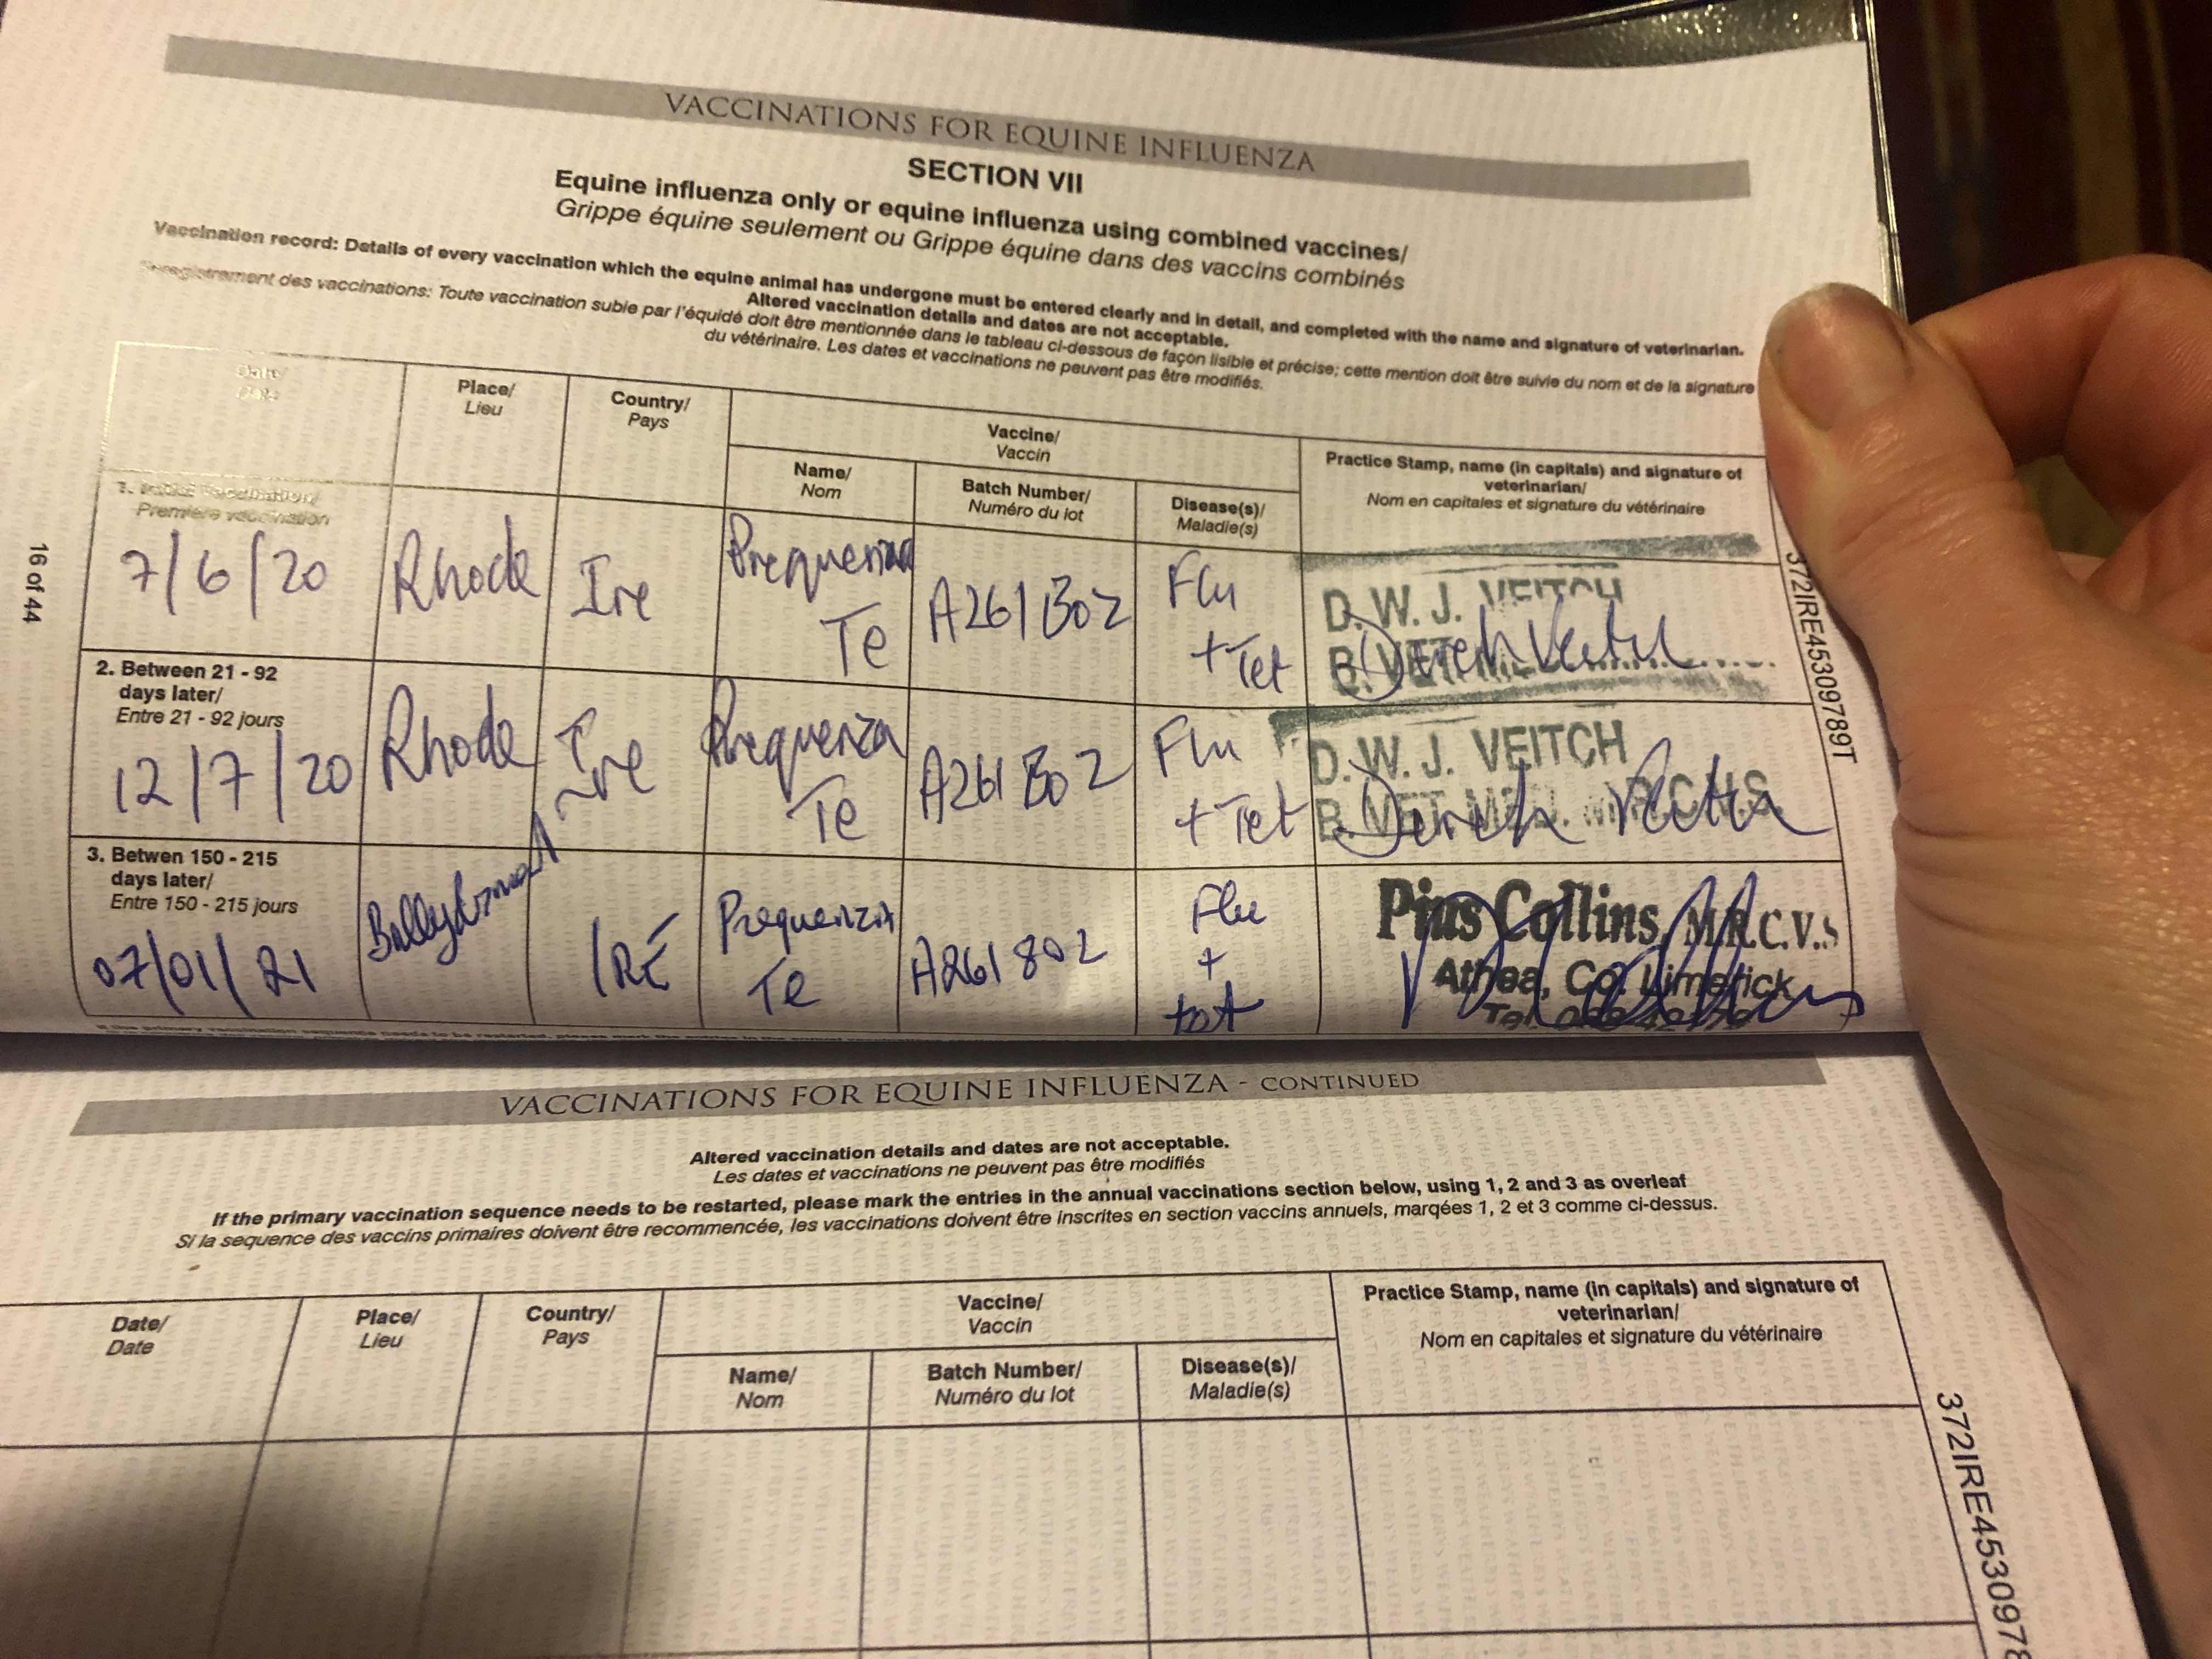 VACCINATIONS FOR EQUINE INFLUENZA
SECTION VII
Equine influenza only or equine influenza using combined vaccines/
Grippe équine seulement ou Grippe équine dans des vaccins combinés
Vaccination record: Details of every vaccination which the equine animal has undergone must be entered clearly and in detail, and completed with the name and signature of veterinarian.
Altered vaccination details and dates are not acceptable.
Enregistrement des vaccinations: Toute vaccination subie par l'équidé doit être mentionnée dans le tableau ci-dessous de façon lisible et précise; cette mention doit être suivie du nom et de la signature
du vétérinaire. Les dates et vaccinations ne peuvent pas être modifiés.
Date/
Date
Place/
Lieu
Country/
Pays
Vaccine/
Vaccin
Name/
Nom
Batch Number/
Numéro du lot
Disease(s)/
Maladie(s)
Practice Stamp, name (in capitals) and signature of
veterinarian/
Nom en capitales et signature du vétérinaire
1. Initial Vaccination/
Première vaccination
7/6/20
Rhode
Ire
Prequenza
Te
A261B02
Flu
+ Tet
D. W. J. VEITCH
Derek Veitch
2. Between 21 - 92
days later/
Entre 21 - 92 jours
12/7/20
Rhode
Ire
Prequenza
Te
A261B02
Flu
+ Tet
D. W. J. VEITCH
B. VET. MED. M.R.C.V.S.
Derek Veitch
3. Betwen 150 - 215
days later/
Entre 150 - 215 jours
07/01/21
IRE
Prequenza
Te
A261802
Flu
+
tet
Pius Collins, M.R.C.V.S
Athea, Co. Limerick
Tel.
16 of 44
372IRE45309789T
VACCINATIONS FOR EQUINE INFLUENZA - CONTINUED
Altered vaccination details and dates are not acceptable.
Les dates et vaccinations ne peuvent pas être modifiés
If the primary vaccination sequence needs to be restarted, please mark the entries in the annual vaccinations section below, using 1, 2 and 3 as overleaf
Si la sequence des vaccins primaires doivent être recommencée, les vaccinations doivent être inscrites en section vaccins annuels, marqées 1, 2 et 3 comme ci-dessus.
Date/
Date
Place/
Lieu
Country/
Pays
Vaccine/
Vaccin
Name/
Nom
Batch Number/
Numéro du lot
Disease(s)/
Maladie(s)
Practice Stamp, name (in capitals) and signature of
veterinarian/
Nom en capitales et signature du vétérinaire
372IRE4530978